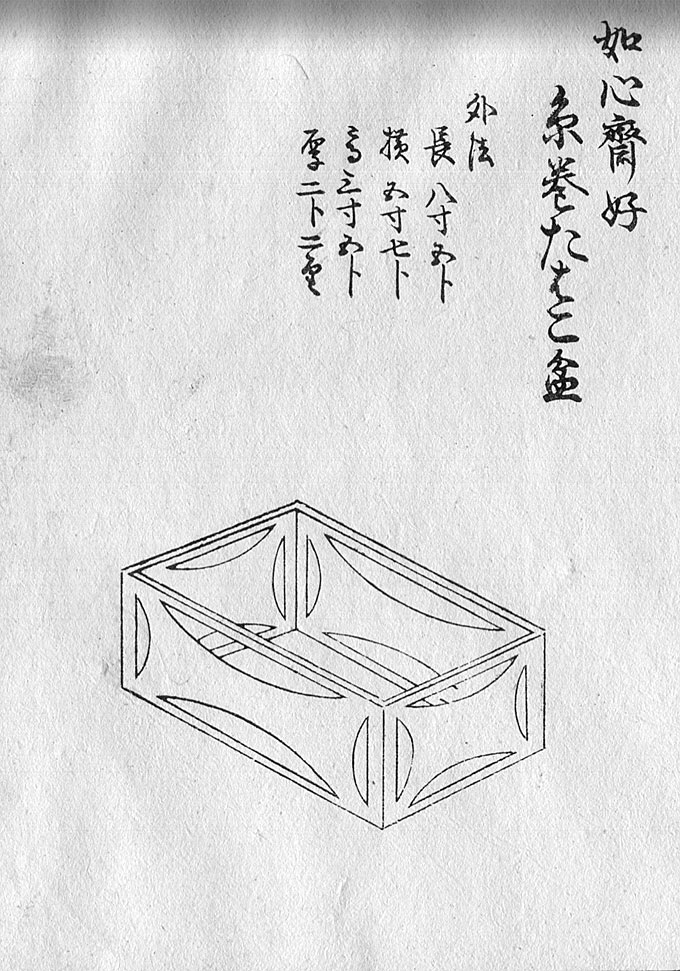 如心齋好
糸巻たはこ盆
外法
長八寸五卜
横五寸七卜
高三寸五卜
厚二卜二리